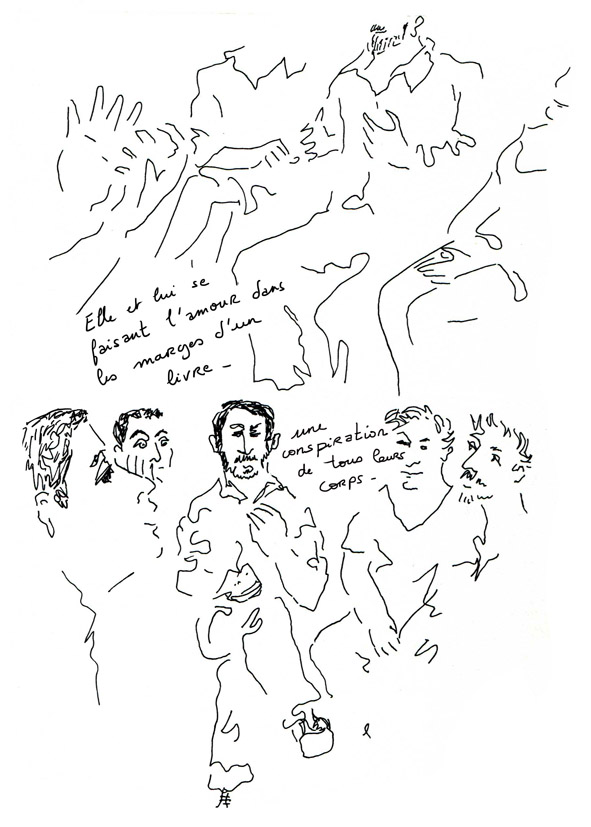 Elle et lui se
faisant l'amour dans
les marges d'un
livre -
une
conspiration
de tous leurs
corps -